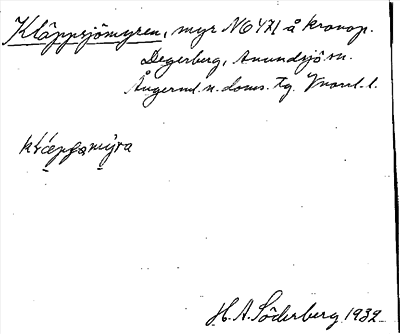 Kläppsjömyren, myr N6471 å kronop.
Degerberg, Anundsjö sn.
Ångerml. n. doms. tg. Vnorrl. l.
klæpsamýra
H. A. Söderberg 1932